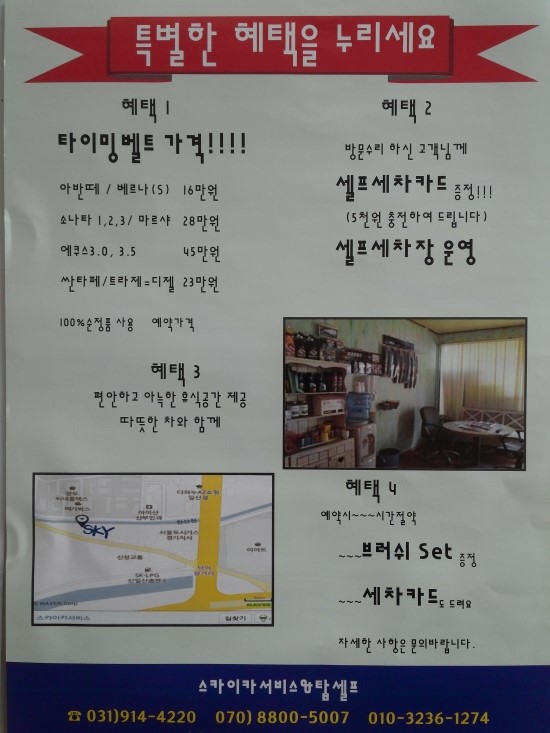 특별한 혜택을 누리세요
혜택 1
타이밍벨트 가격!!!!
아반떼 / 베르나(S) 16만원
소나타 1,2,3/ 마르샤 28만원
에쿠스3.0, 3.5 45만원
싼타페/트라제=디젤 23만원
100%순정품 사용 예약가격
혜택 2
방문수리 하신 고객님께
셀프세차카드 증정!!!
(5천원 충전하여 드립니다)
셀프세차장 운영
혜택 3
편안하고 아늑한 휴식공간 제공
따뜻한 차와 함께
메가박스
SKY
마리산
산부인과
서울도시가스
경기지사
이마트
신성교통
SK-LPG
스카이카서비스
길찾기
혜택 4
예약시~~~시간절약
~~~브러쉬 Set 증정
~~~세차카드도 드려요
자세한 사항은 문의바랍니다.
스카이카서비스&탑셀프
☎ 031)914-4220 070) 8800-5007 010-3236-1274